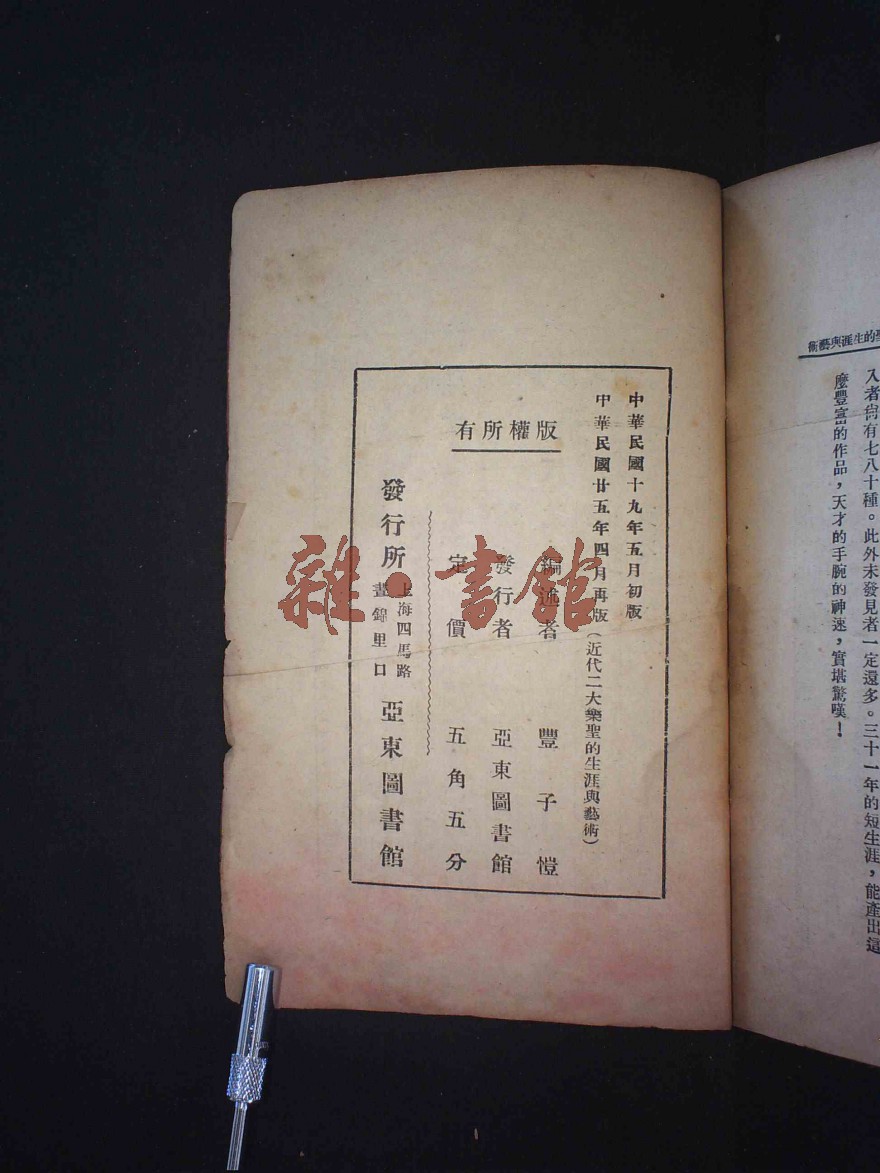 術藝與涯生的聖
入者尙有七八十種。此外未發見者一定還多。三十一年的短生涯，能產出這
麼豐富的作品，天才的手腕的神速，實堪驚嘆！
中華民國十九年五月初版
中華民國廿五年四月再版（近代二大樂聖的生涯與藝術）
有所權版
編述者　豐子愷
發行者　亞東圖書館
定價　五角五分
發行所
上海四馬路
畫錦里口
亞東圖書館
雜·書館